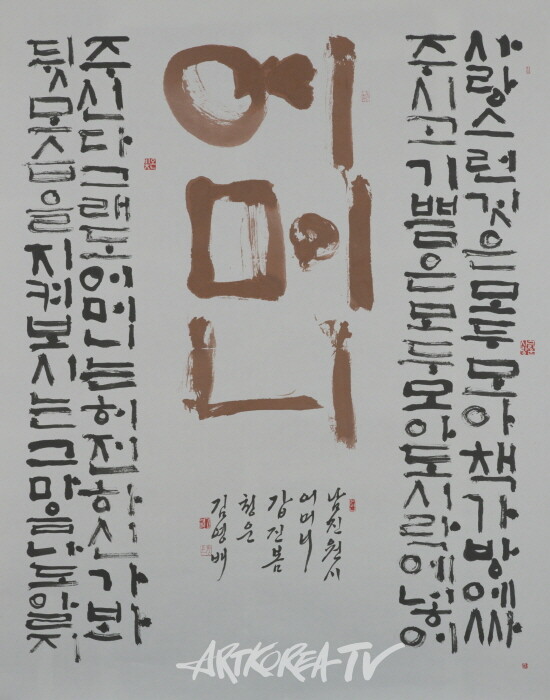 사랑스런 것은 모두 모아 책가방에 싸
주시고 기쁨은 모두 모아 도시락에 넣어
어머니
주신다 그래도 어머니는 허전하신가 봐
뒷모습을 지켜보시는 그 마음 나도 알지
남진원 시
어머니
갑진 봄
청운
김영배
ARTKOREA-TV